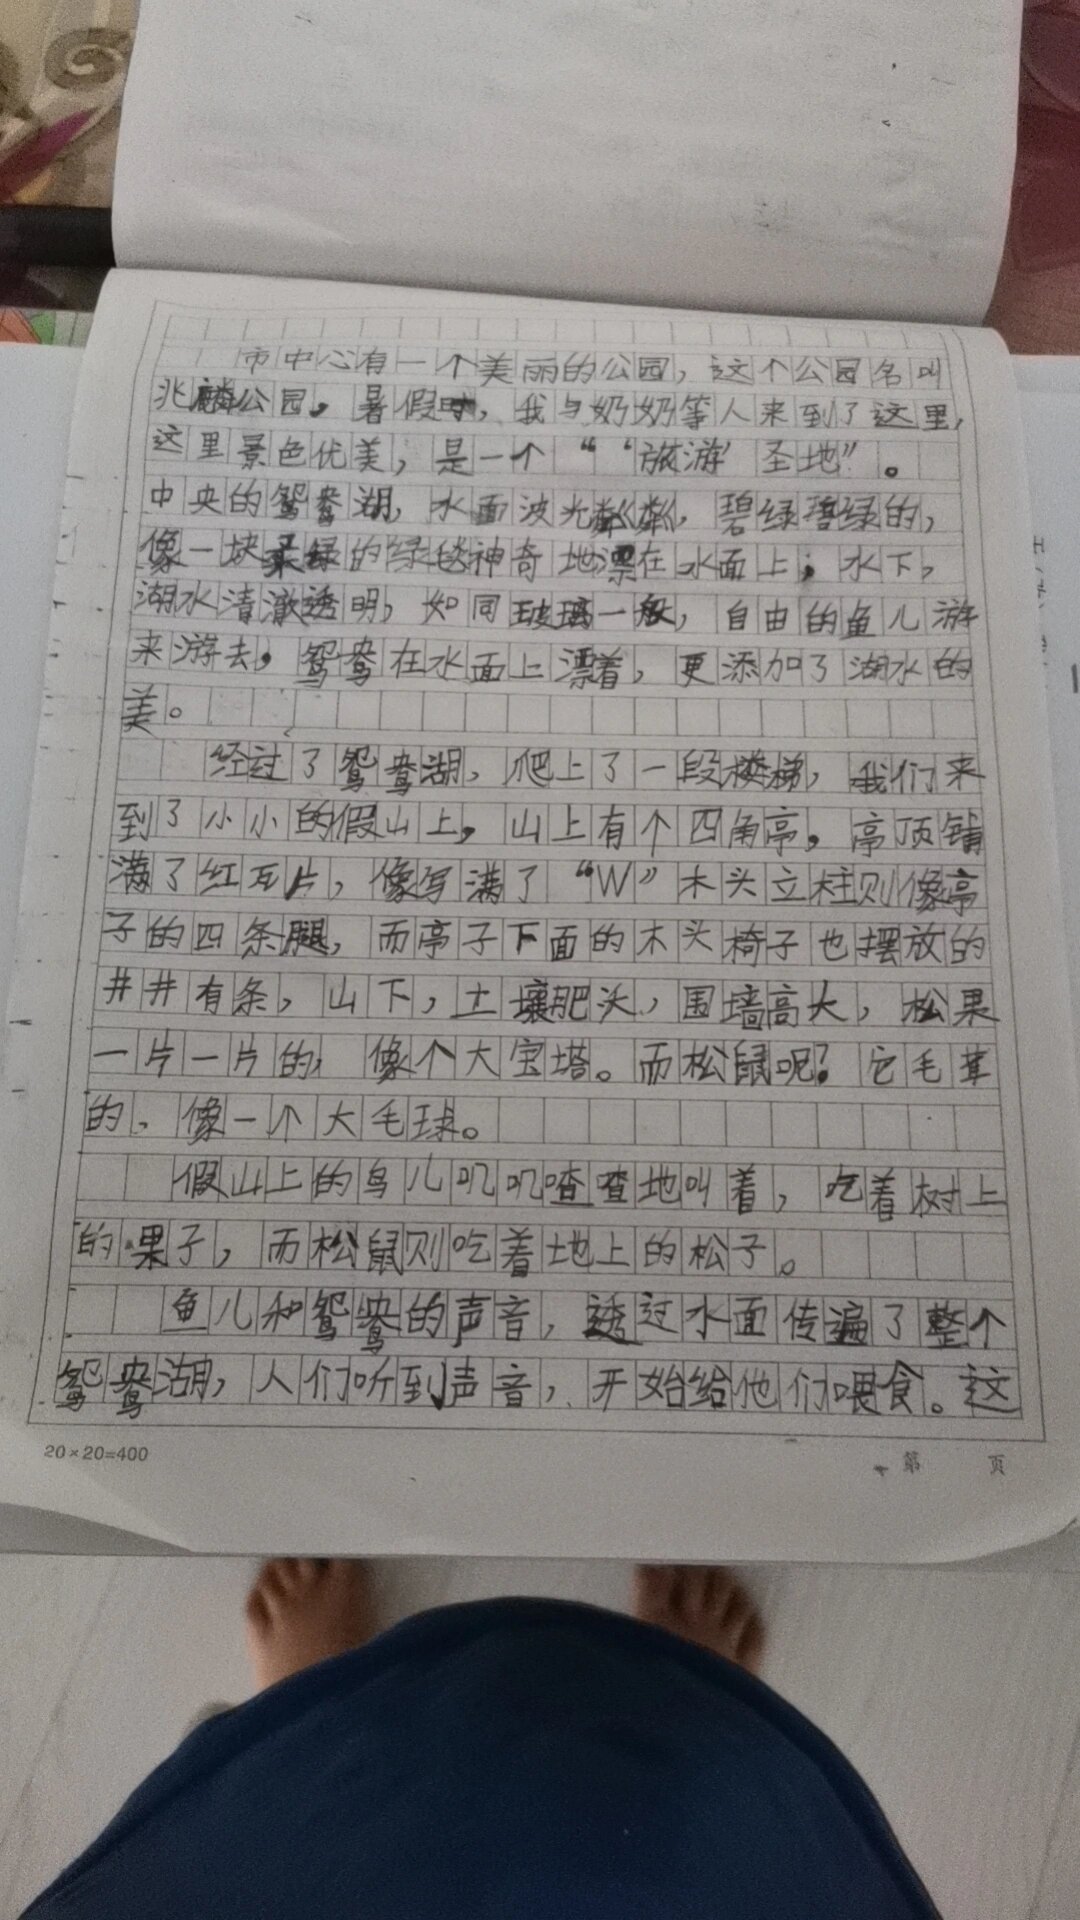 市中心有一个美丽的公园，这个公园名叫
兆麟公园。暑假时，我与奶奶等人来到了这里，
这里景色优美，是一个“‘旅游’圣地”。
中央的鸳鸯湖，水面波光粼粼，碧绿碧绿的，
像一块柔绿的绿毯神奇地漂在水面上；水下，
湖水清澈透明，如同玻璃一般，自由的鱼儿游
来游去，鸳鸯在水面上漂着，更添加了湖水的
美。
经过了鸳鸯湖，爬上了一段楼梯，我们来
到了小小的假山上，山上有个四角亭，亭顶铺
满了红瓦片，像写满了“W”木头立柱则像亭
子的四条腿，而亭子下面的木头椅子也摆放的
井井有条，山下，土壤肥头，围墙高大，松果
一片一片的，像个大宝塔。而松鼠呢？它毛茸
的，像一个大毛球。
假山上的鸟儿叽叽喳喳地叫着，吃着树上
的果子，而松鼠则吃着地上的松子。
鱼儿和鸳鸯的声音，透过水面传遍了整个
鸳鸯湖，人们听到声音，开始给他们喂食。这
20×20=400
第 页